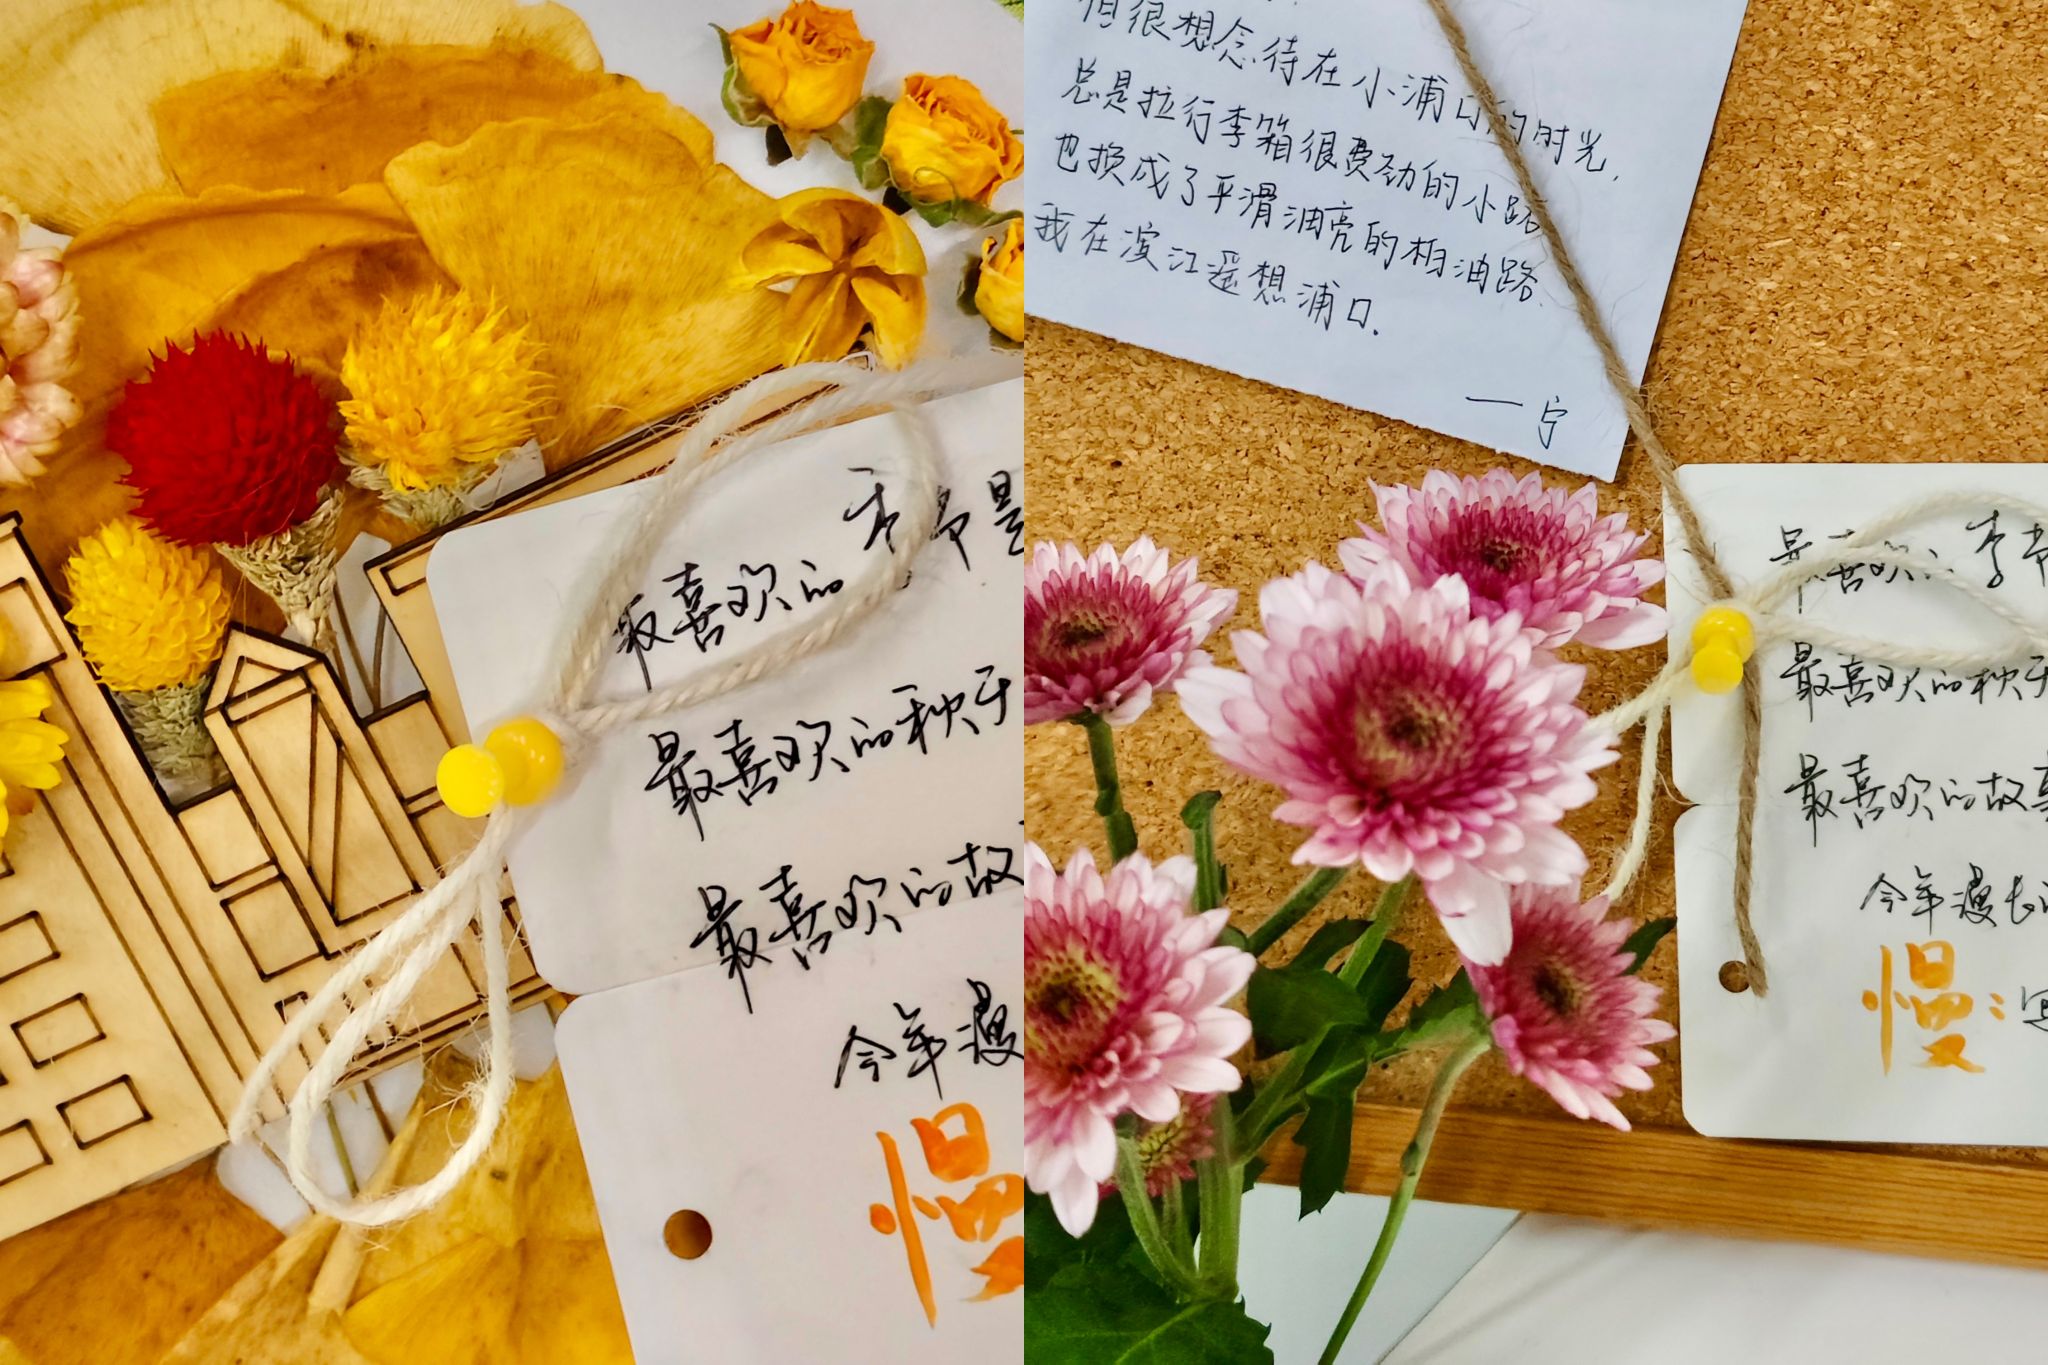 最喜欢的季节是
最喜欢的秋于
最喜欢的故
今年漫
慢
但很想念待在小浦口的时光,
总是拉行李箱很费劲的小路
也换成了平滑油亮的柏油路.
我在滨江遥想浦口.
——宁
最喜欢的季节
最喜欢的秋于
最喜欢的故事
今年漫长的
慢: